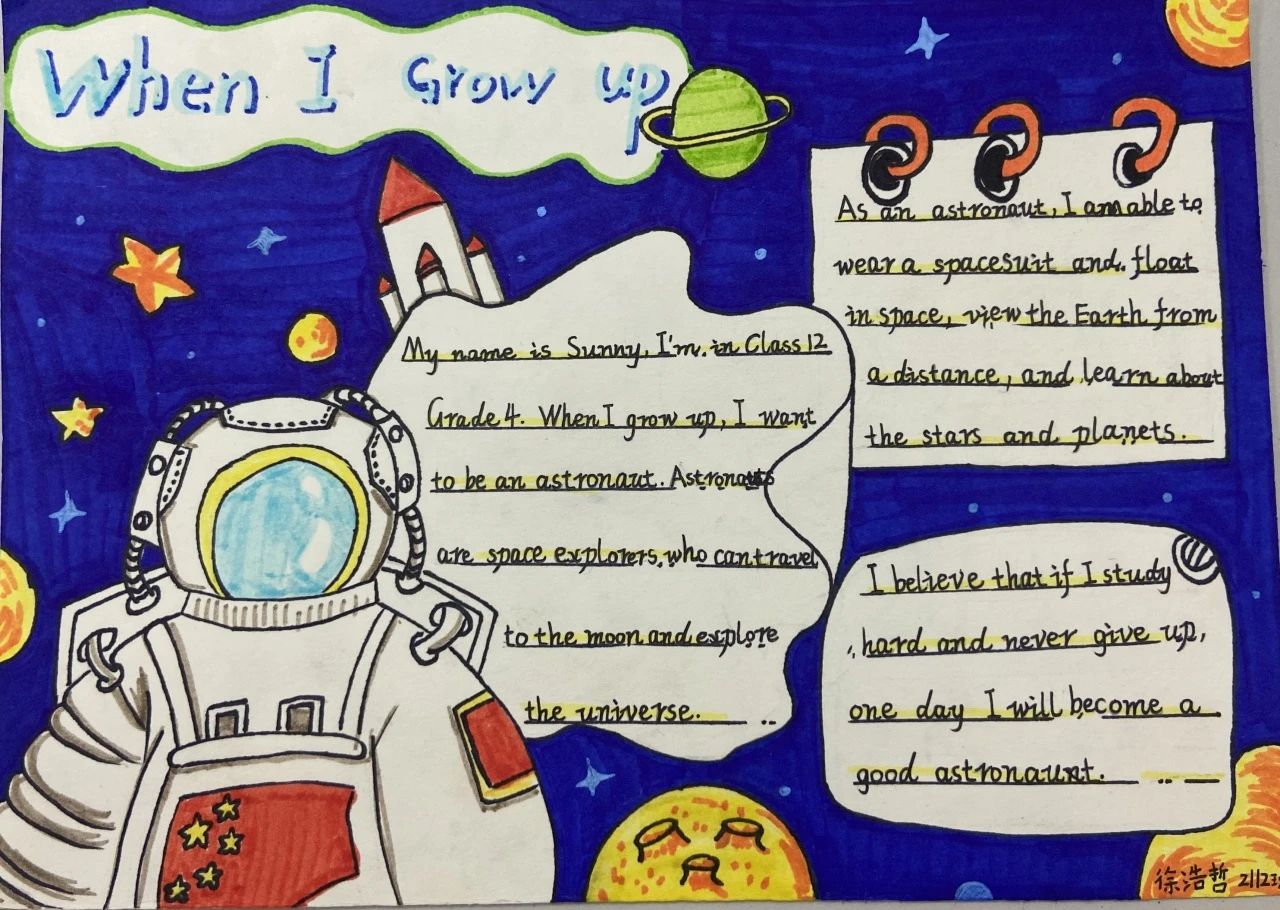 When I Grow up
My name is Sunny, I'm. in Class 12
Grade 4. When I grow up, I want
to be an astronaut. Astronauts
are space explorers, who can travel
to the moon and explore
the universe.
As an astronaut, I am able to
wear a spacesuit and. float
in space, view the Earth from
a distance, and learn about
the stars and planets.
I believe that if I study
hard and never give up,
one day I will become a
good astronaunt.
徐浩哲